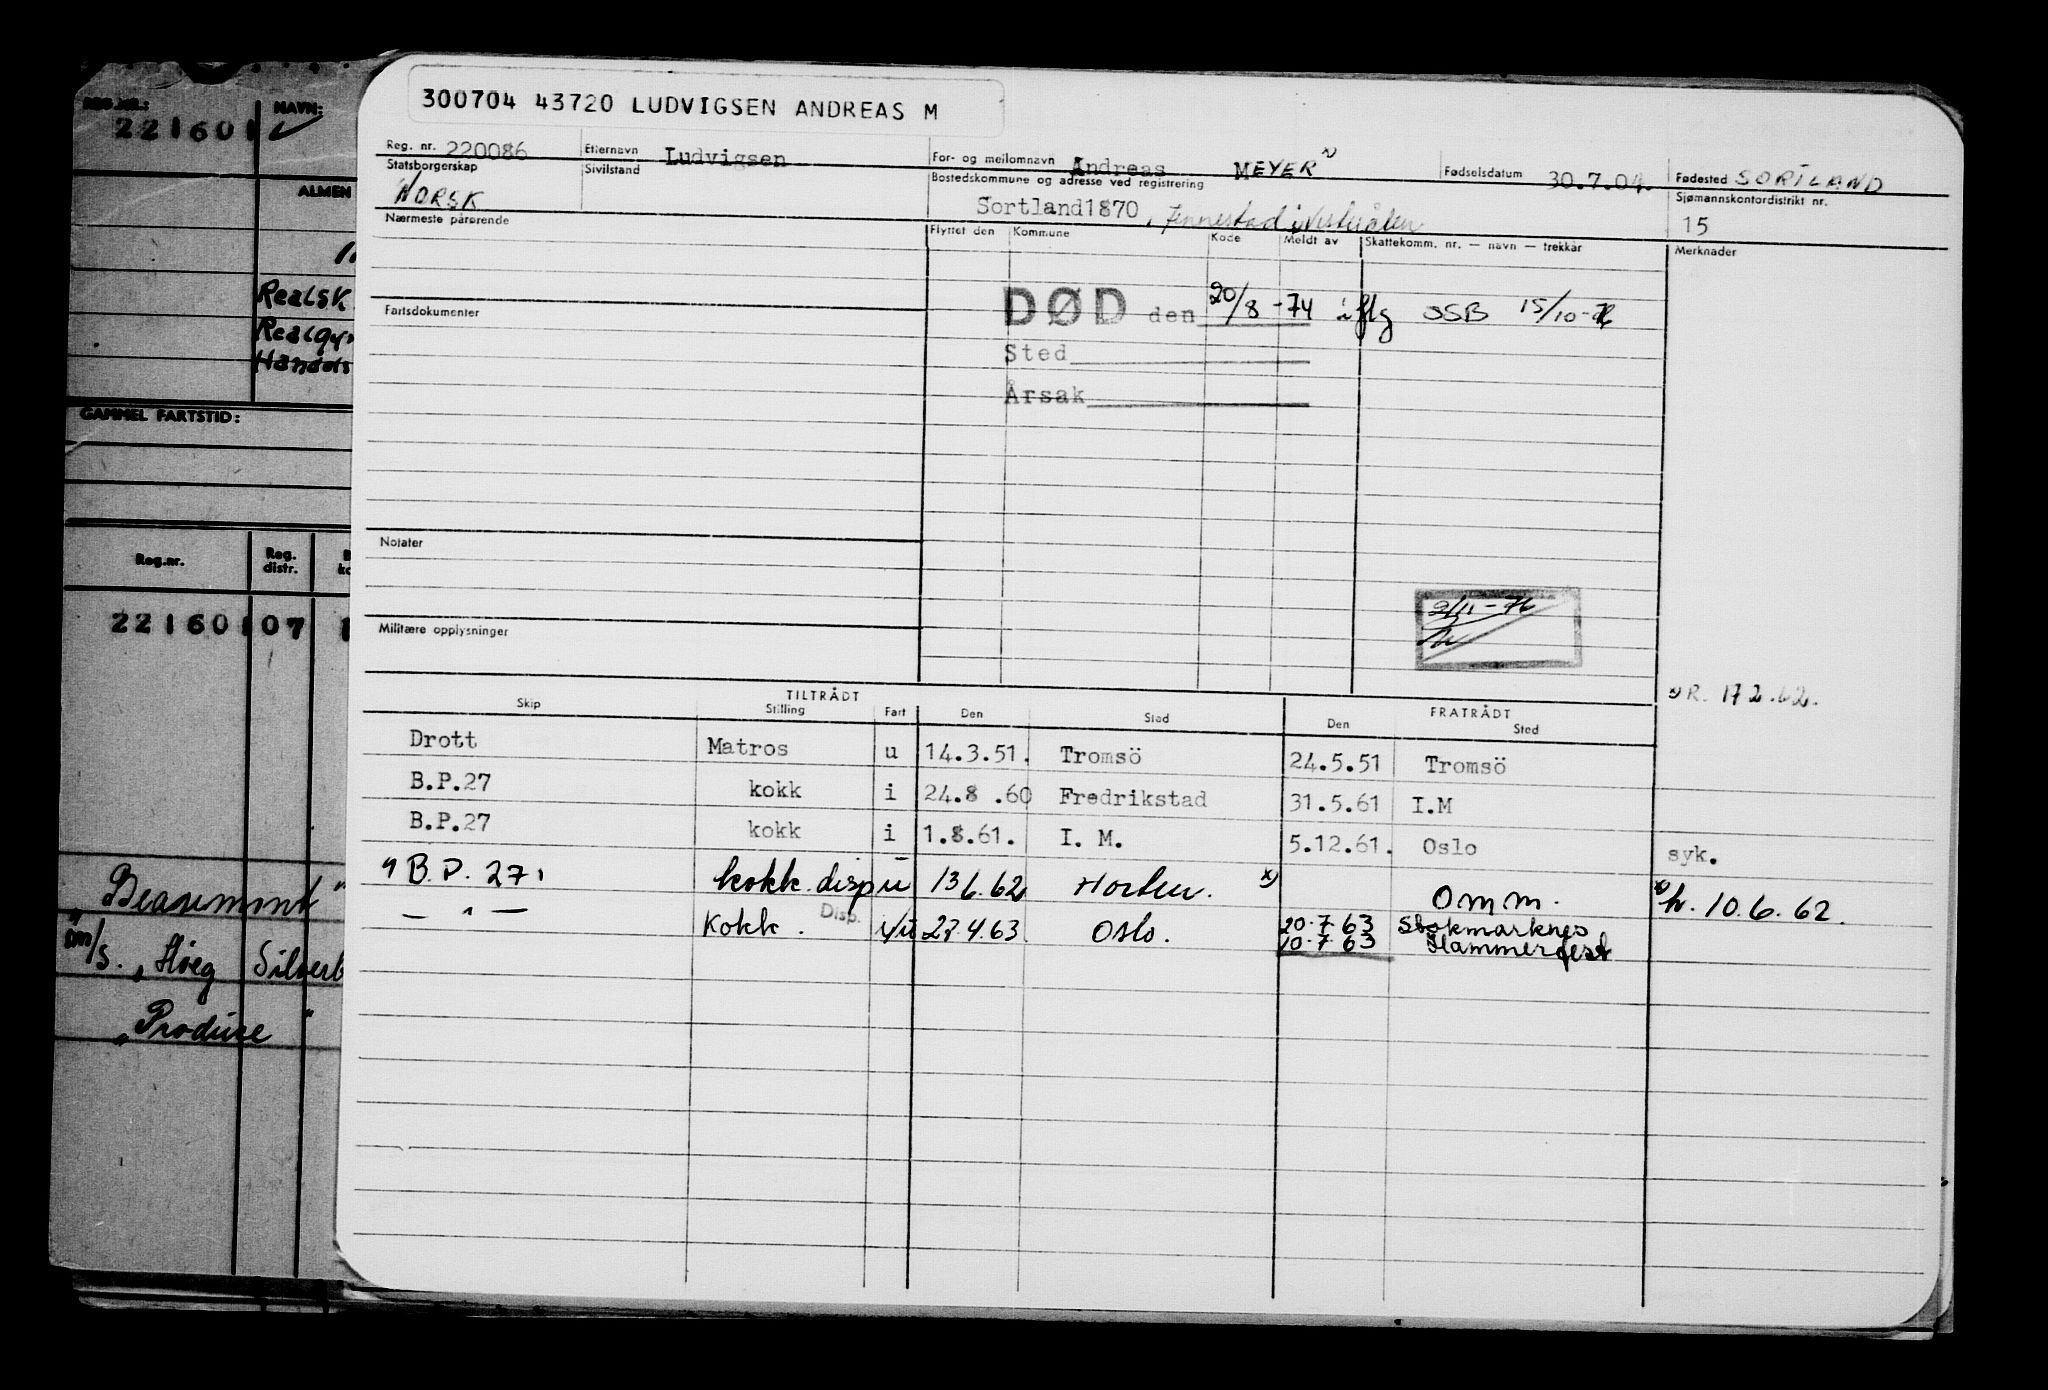 300704 43720 LUDVIGSEN ANDREAS M
REG.NR.: NAVN:
221601
ALMEN
Realsk.
Handels
GAMMEL FARTSTID:
Reg.nr. Reg. distr.
221601 07
"Beaumont"
m/s. "Höeg Silverb
"Produce"
Reg. nr. 220086 Etternavn Ludvigsen For- og mellomnavn Andreas MEYER x) Fødselsdatum 30.7.04. Fødested SORTLAND
Statsborgerskap NORSK Sivilstand Bostedskommune og adresse ved registrering Sortland 1870, Jennestad i Vesterålen Sjømannskontordistrikt nr. 15
Nærmeste pårørende Flyttet den Kommune Kode Meldt av Skattekomm. nr. — navn — trekkår Merknader
DØD den 20/8 -74 iflg OSB 15/10-
Fartsdokumenter
Sted
Årsak
Notater
2/11-76
Militære opplysninger
x) R. 17.2.62.
TILTRÅDT FRATRÅDT
Skip Stilling Fart Den Sted Den Sted
Drott Matros u 14.3.51. Tromsö 24.5.51 Tromsö
B.P.27 kokk i 24.8.60 Fredrikstad 31.5.61 I.M
B.P.27 kokk i 1.8.61. I. M. 5.12.61. Oslo syk.
"B.P. 27" kokk disp u 13.6.62 Horten. x) Omm. x) h. 10.6.62.
— " — Kokk. Disp. i/u 27.4.63. Oslo. 20.7.63 Stokmarknes
10.7.63 Hammerfest